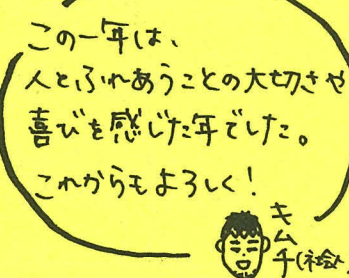 この一年は、
人とふれあうことの大切さや
喜びを感じた年でした。
これからもよろしく!
キムチ